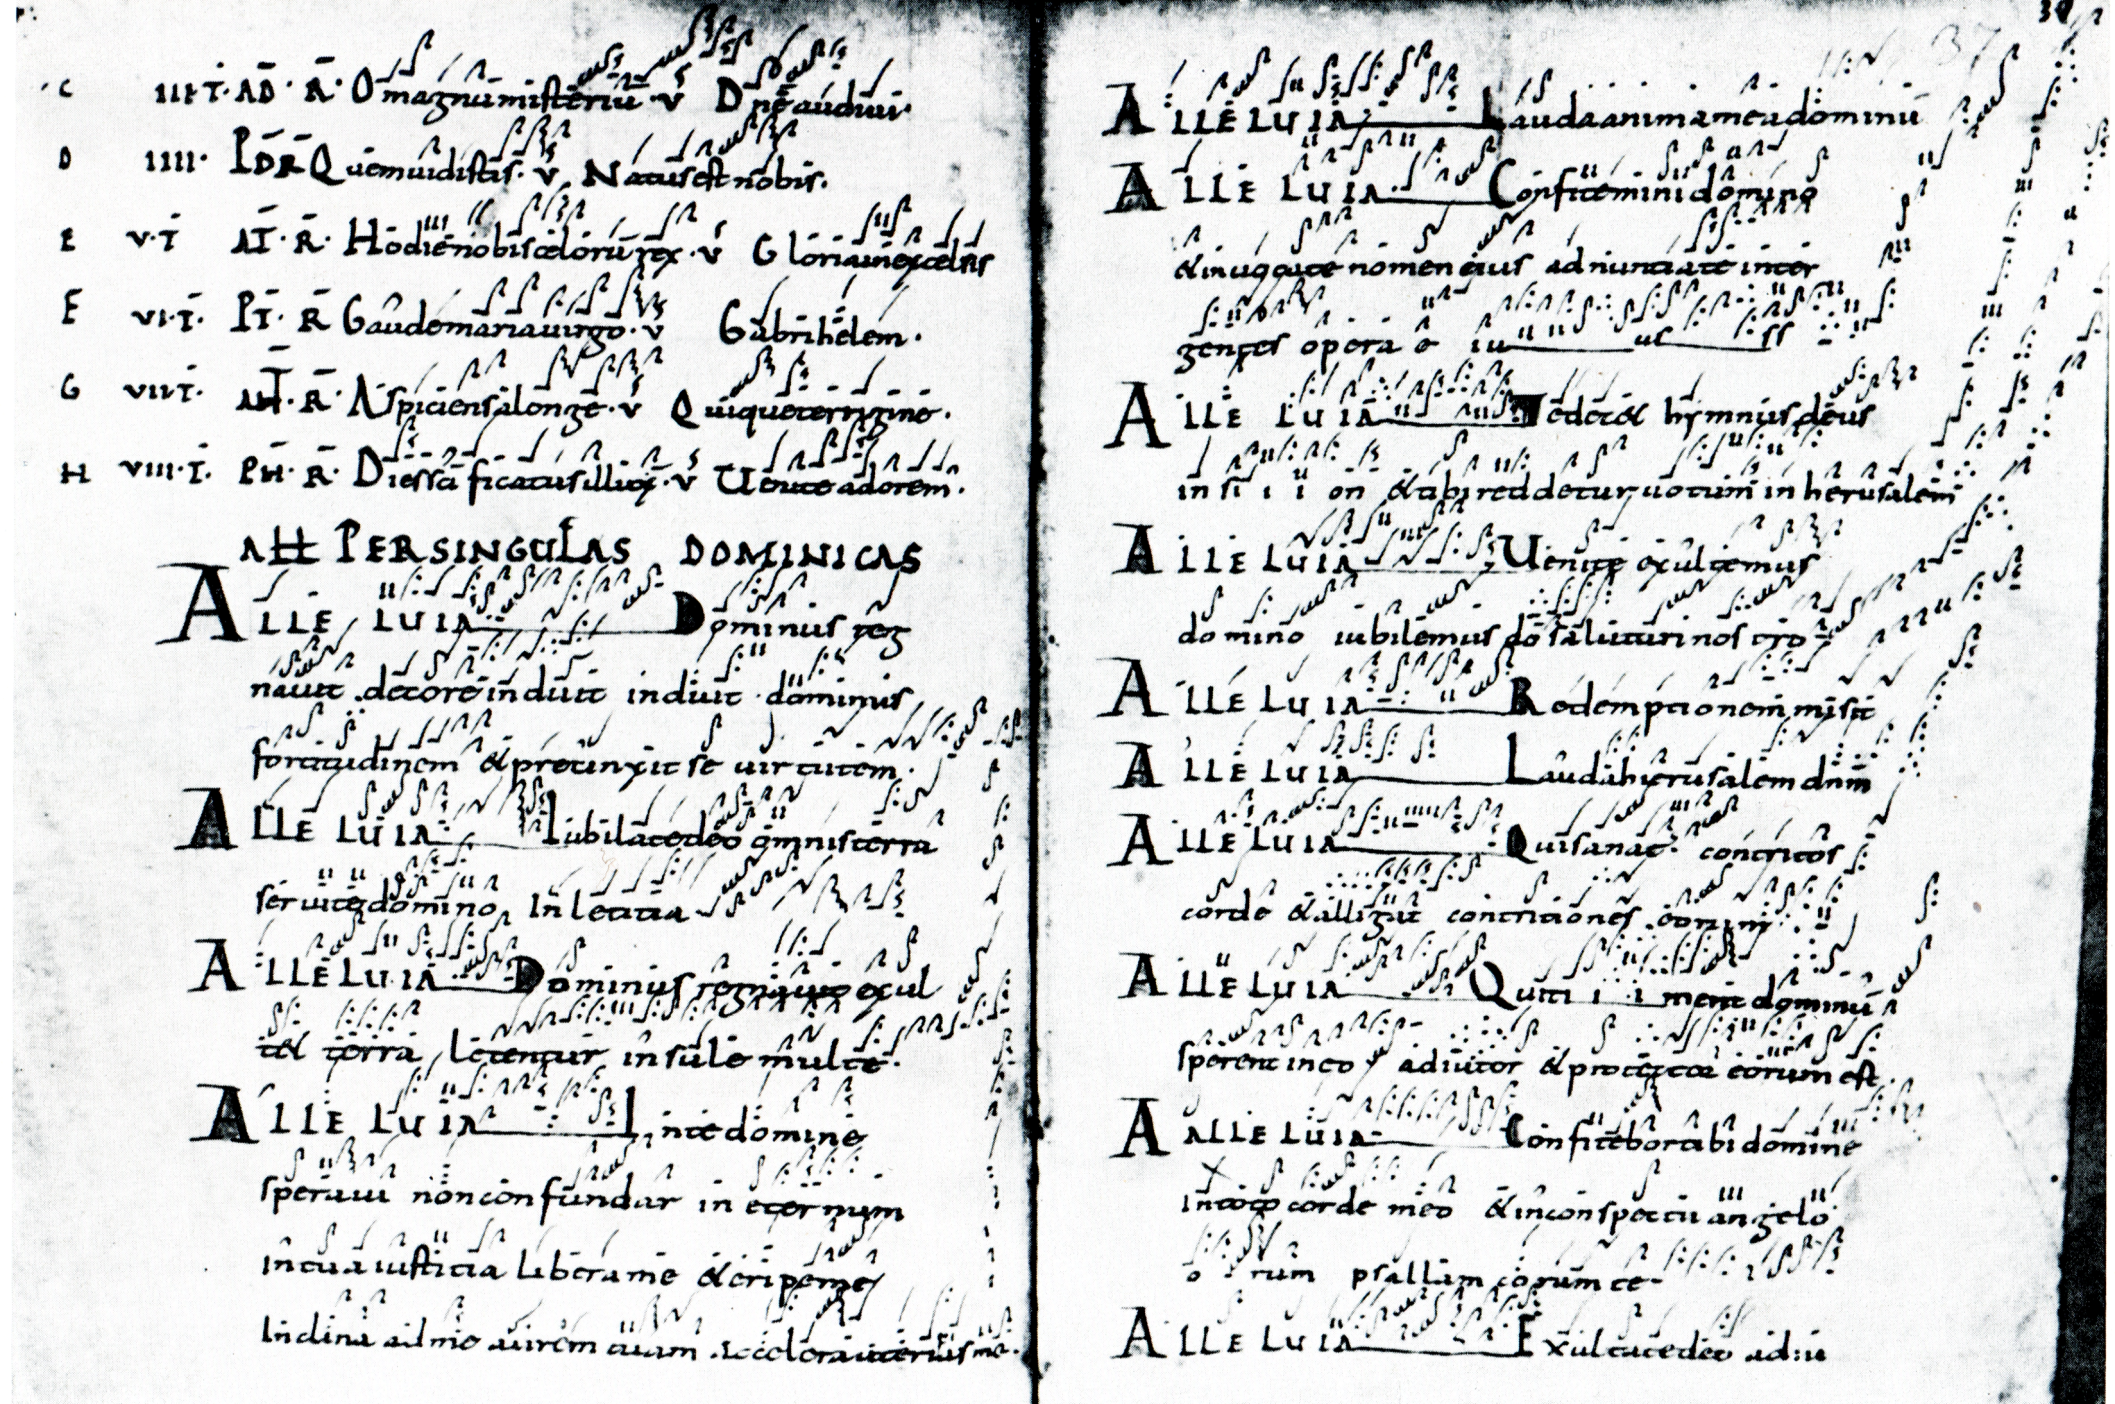 C III·T· AD· R· O magnū misteriū· V Dn̄e audiui·
D IIII· PD R Quem uidistis· V Natus est nobis·
E V·T AT· R· Hodie nobis cęlorū rex· V Gloria in excelsis
F VI·T· PT· R Gaude maria uirgo· V Gabrihelem·
G VII·T· AH· R· Aspiciens a longe· V Quique terrigine·
H VIII·T· PH· R· Dies sc̄ificatus illux̄· V Uenite adorem̄·
PER SINGULAS DOMINICAS
ALLE LUIA Dominus reg
nauit decore induit induit dominus
fortitudinem & precinxit se uirtutem·
ALLE LUIA Iubilate deo omnis terra
seruite domino In letitia
ALLE LUIA Dominus regnauit exul
t& terra letentur insule multe·
ALLE LUIA In te domine
speraui non confundar in eternum
In tua iustitia libera me & eripe me
Inclina ad me aurem tuam accelera
ALLE LUIA Lauda anima mea dominū
ALLE LUIA· Confitemini domino
& inuocate nomen eius adnuntiate inter
gentes opera e iu us
ALLE LUIA Te dec& hymnus deus
in si i i on & tibi reddetur uotum in hierusalem
ALLE LUIA Uenite exultemus
domino iubilemus dō salutari nostro
ALLE LUIA Redemptionem misit
ALLE LUIA Lauda hierusalem dn̄m
ALLE LUIA Qui sanat· contritos
corde & alligat contritiones eorum
ALLE LUIA Qui ti i i ment dominū
sperent in eo adiutor & protector eorum est
A ALLE LUIA Confitebor tibi domine
in toto corde meo & in conspectu angelo
o rum psallam
ALLE LUIA Exultate deo adiu